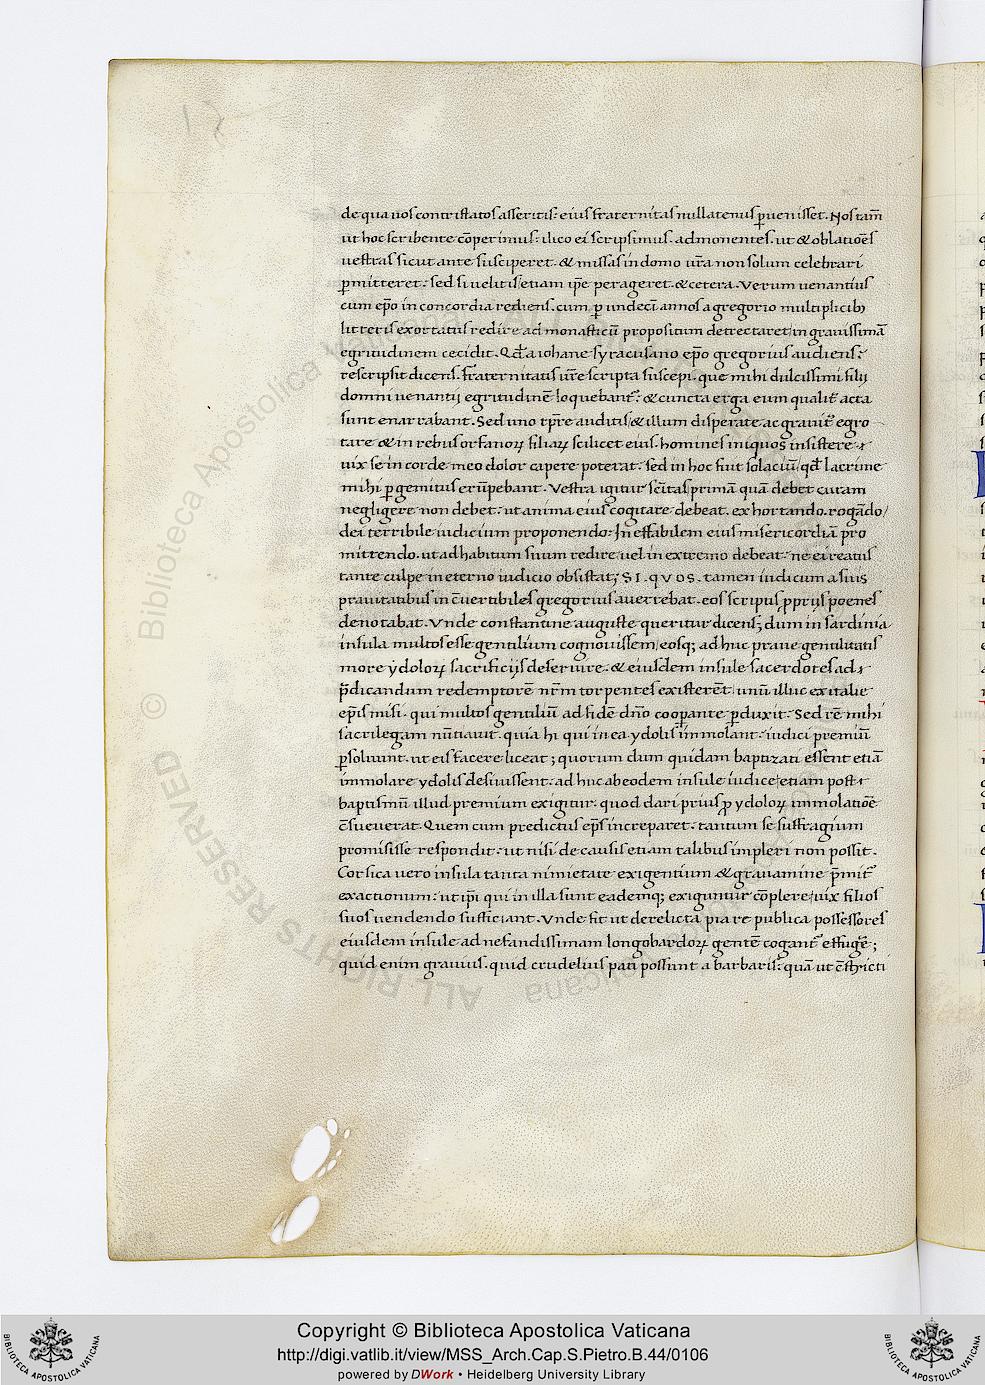 de qua uos contristatos asseritis: eius fraternitas nullatenus ꝑuenisset. Nos tam̄
ut hoc scribente cōperimus: ilico ei scripsimus. admonentes. ut & oblatiōes
uestras sicut ante susciperet. & missas in domo ur̄a non solum celebrari
ꝑmitteret: sed si uelitis etiam ip̄e perageret. & cetera. Verum uenantius
cum ep̄o in concordia rediens. cum ꝑ undeci annos a gregorio multiplicib;
litteris exortatus redire ad monasticū propositum detrectaret in grauissimā
egritudinem cecidit. Qd̄ a iohane syracusano ep̄o gregorius audiens:
rescripsit dicens. fraternitatis ur̄e scripta suscepi. que mihi dulcissimi filij
domni uenantij egritudinē loquebant᷑: & cuncta erga eum qualit᷑ acta
sunt enarrabant. Sed uno tꝑre auditis & illum disperate ac grauit᷑ egro
tare & in rebus orfanoꝝ filiaꝝ scilicet eius. homines iniquos insistere
uix se in corde meo dolor capere poterat. sed in hoc fuit solaciū qd̄ lacrime
mihi ꝑ gemitus erūpebant. Vestra igitur scītas primā quā debet curam
negligere non debet: ut anima eius cogitare debeat. exhortando. rogādo
dei terribile iudicium proponendo: Ineffabilem eius misericordiā pro
mittendo. ut ad habitum suum redire uel in extremo debeat: ne ei reatus
tante culpe in eterno iudicio obsistat; SI. QVOS. tamen iudicum a suis
prauitatibus in c̄uertibiles gregorius auertebat. eos scriptis ꝓprijs poenes
denotabat. Vnde constantine auguste queritur dicens; dum in sardinia
insula multos esse gentilium cognouissem eosq; adhuc praue gentilitatis
more ydoloꝝ sacrificijs deseruire. & eiusdem insule sacerdotes ad
p̄dicandum redemptorē nr̄m torpentes existerēt unū illuc ex italie
ep̄is misi. qui multos gentiliū ad fidē dn̄o cooꝑante ꝑduxit. Sed rē mihi
sacrilegam nūtiauit. quia hi qui in ea ydolis immolant: iudici premiū
ꝑsoluunt. ut eis facere liceat; quorum dum quidam baptizati essent etiā
immolare ydolis desiuissent. adhuc ab eodem insule iudice etiam post
baptismū illud premium exigitur. quod dari prius ꝓ ydoloꝝ immolatiōe
c̄sueuerat. Quem cum predictus ep̄s increparet: tantum se suffragium
promisisse respondit: ut nisi de causis etiam talibus impleri non possit.
Corsica uero insula tanta nimietate exigentium & grauamine p̄mit᷑
exactionum: ut ip̄i qui in illa sunt eademq; exiguntur cōplere uix filios
suos uendendo sufficiant. Vnde fit ut derelicta pia re publica possessores
eiusdem insule ad nefandissimam longobardoꝝ gentē cogant᷑ effugē;
quid enim grauius. quid crudelius pati possunt a barbaris: quā ut c̄stricti
© Biblioteca Apostolica Vaticana
ALL RIGHTS RESERVED
Copyright © Biblioteca Apostolica Vaticana
http://digi.vatlib.it/view/MSS_Arch.Cap.S.Pietro.B.44/0106
powered by DWork • Heidelberg University Library